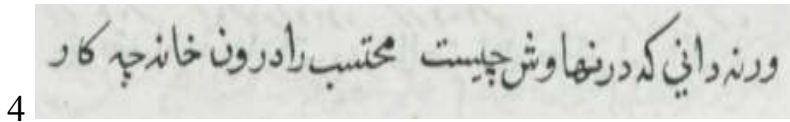 ورنه داني که در نهاوش چیست محتسب را درون خانه چه کار
4